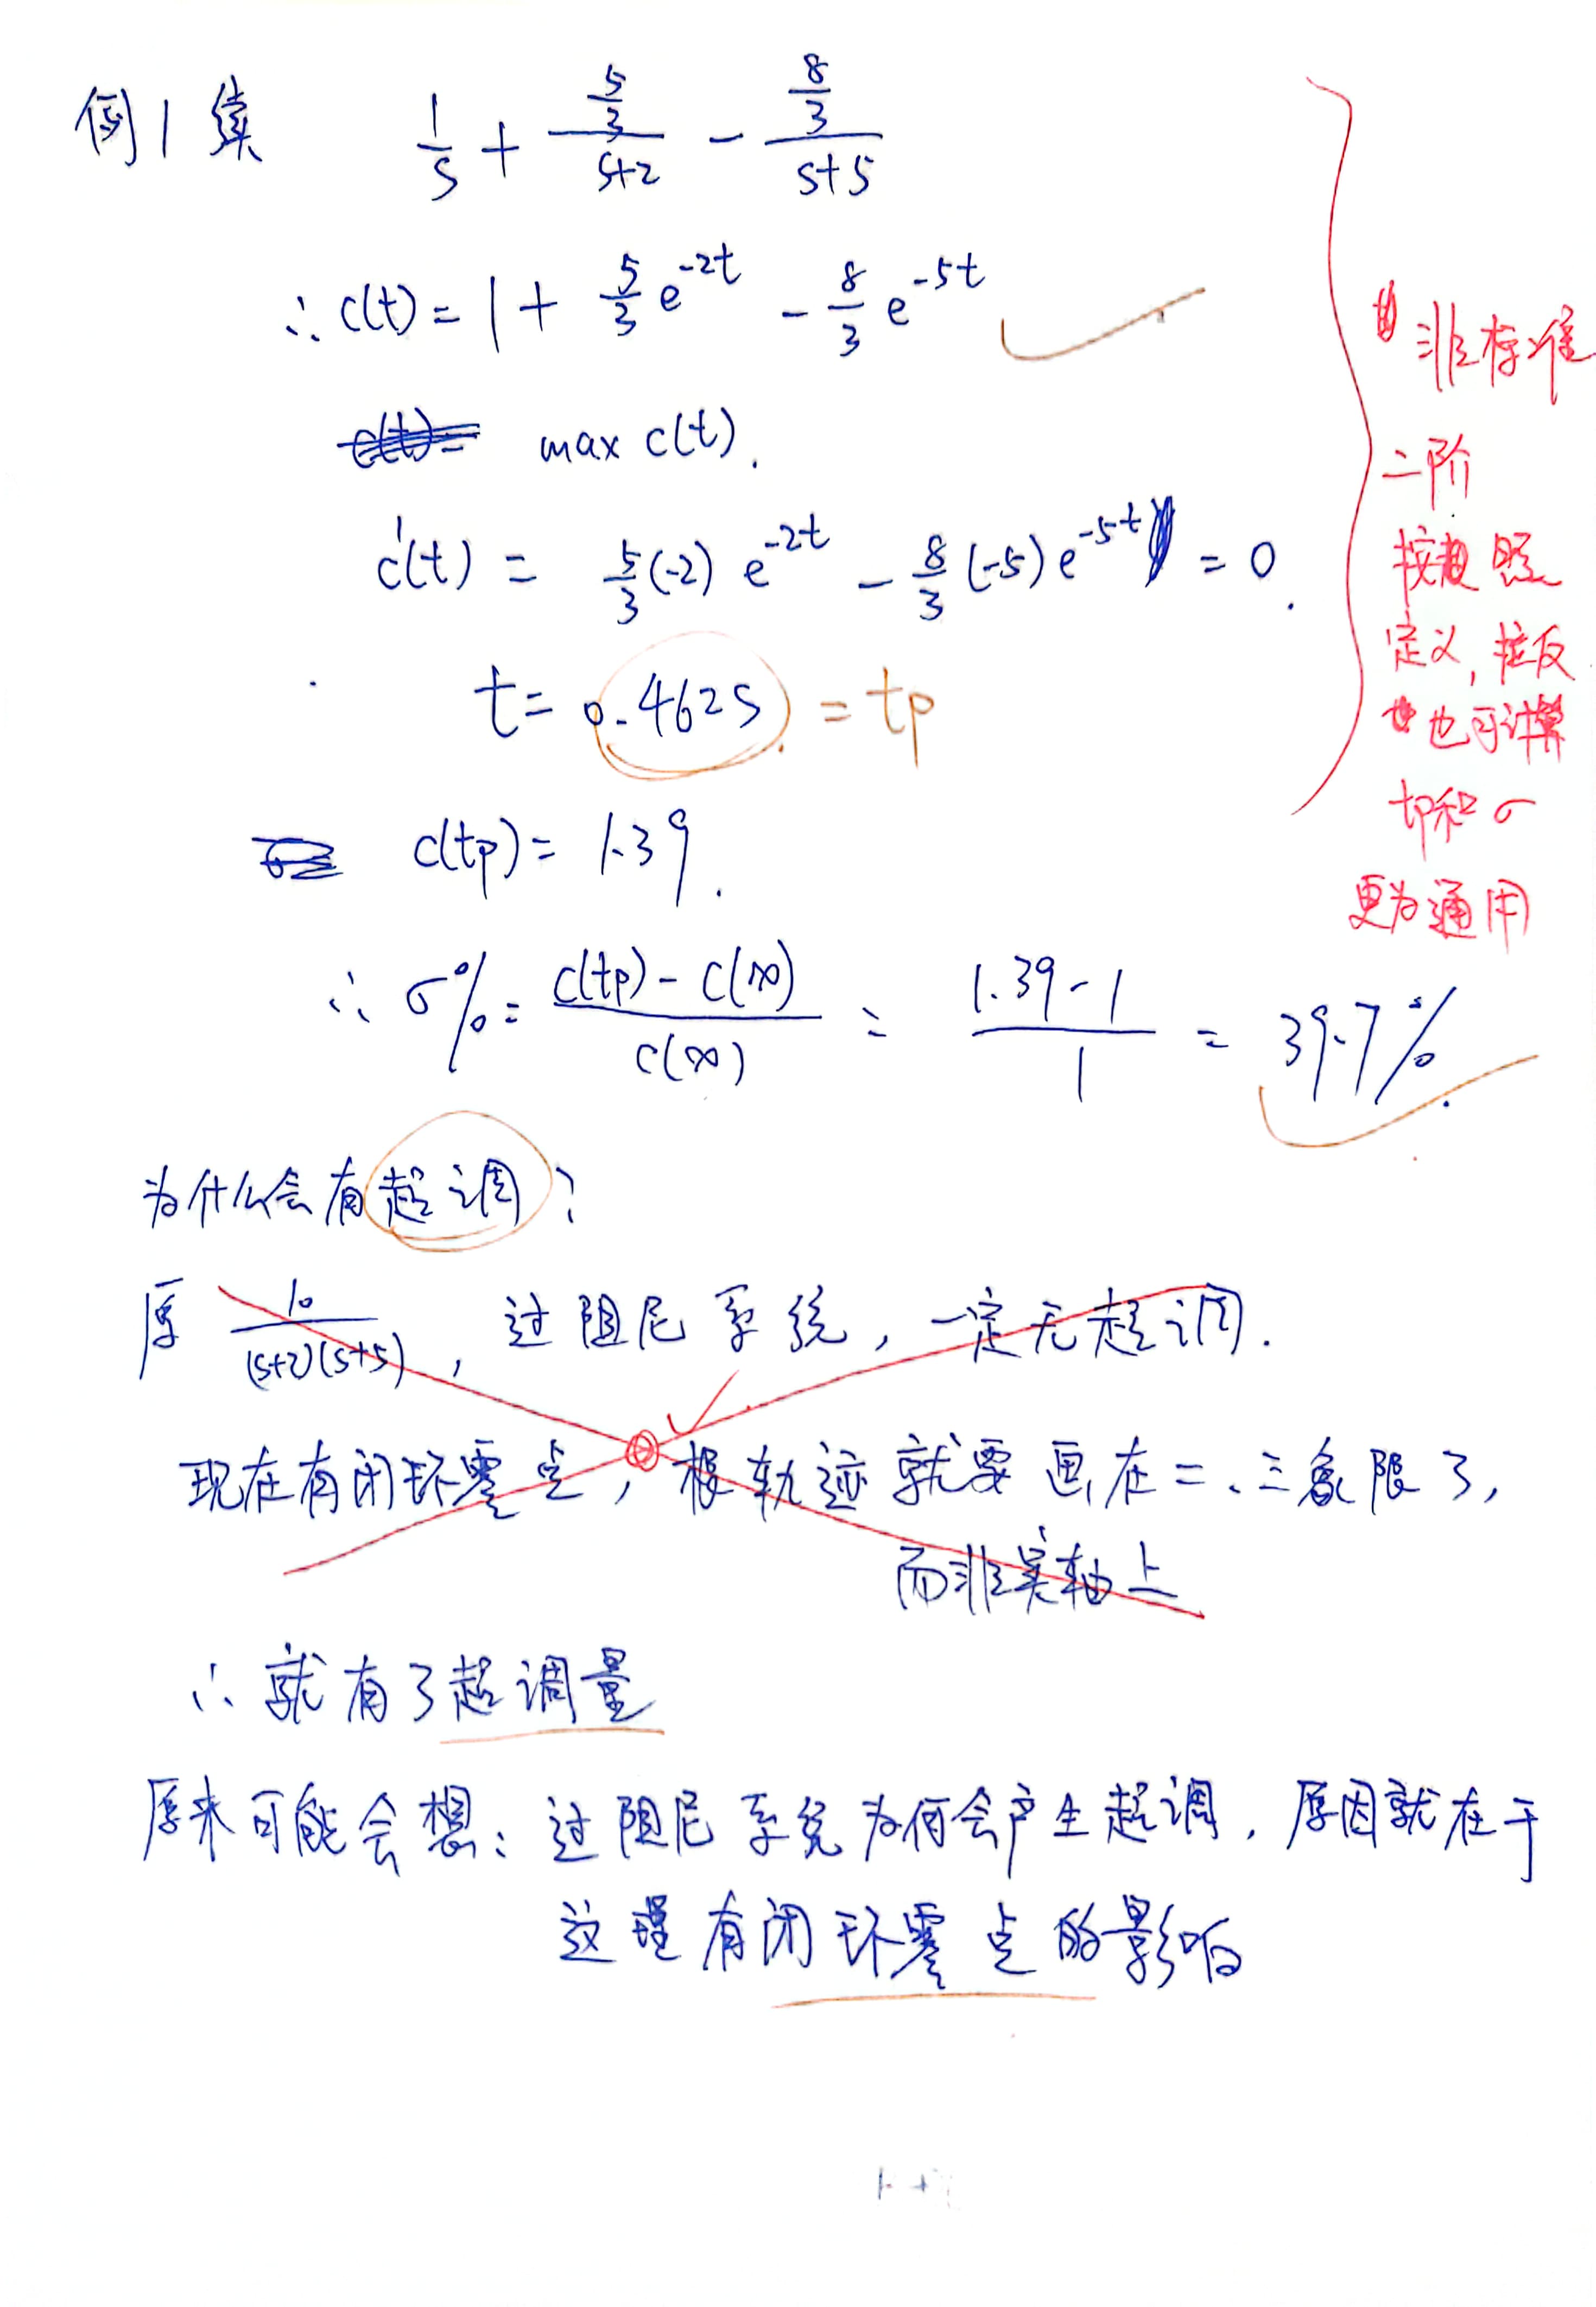 例1续 1/s + (5/3)/(s+2) - (8/3)/(s+5)
∴ c(t) = 1 + 5/3 e^{-2t} - 8/3 e^{-5t}
max c(t).
c'(t) = 5/3 (-2) e^{-2t} - 8/3 (-5) e^{-5t} = 0.
t = 0.462s = tp
c(tp) = 1.39.
∴ σ% = (c(tp) - c(∞))/c(∞) = (1.39 - 1)/1 = 39.7%.
非标准
二阶
按照
定义,拉反
也可计算
tp和σ
更为通用
为什么会有超调?
原 10/((s+2)(s+5)), 过阻尼系统,一定无超调.
现在有闭环零点,根轨迹就要画在二、三象限了,
而非实轴上
∴ 就有了超调量
原来可能会想:过阻尼系统为何会产生超调,原因就在于
这里有闭环零点的影响